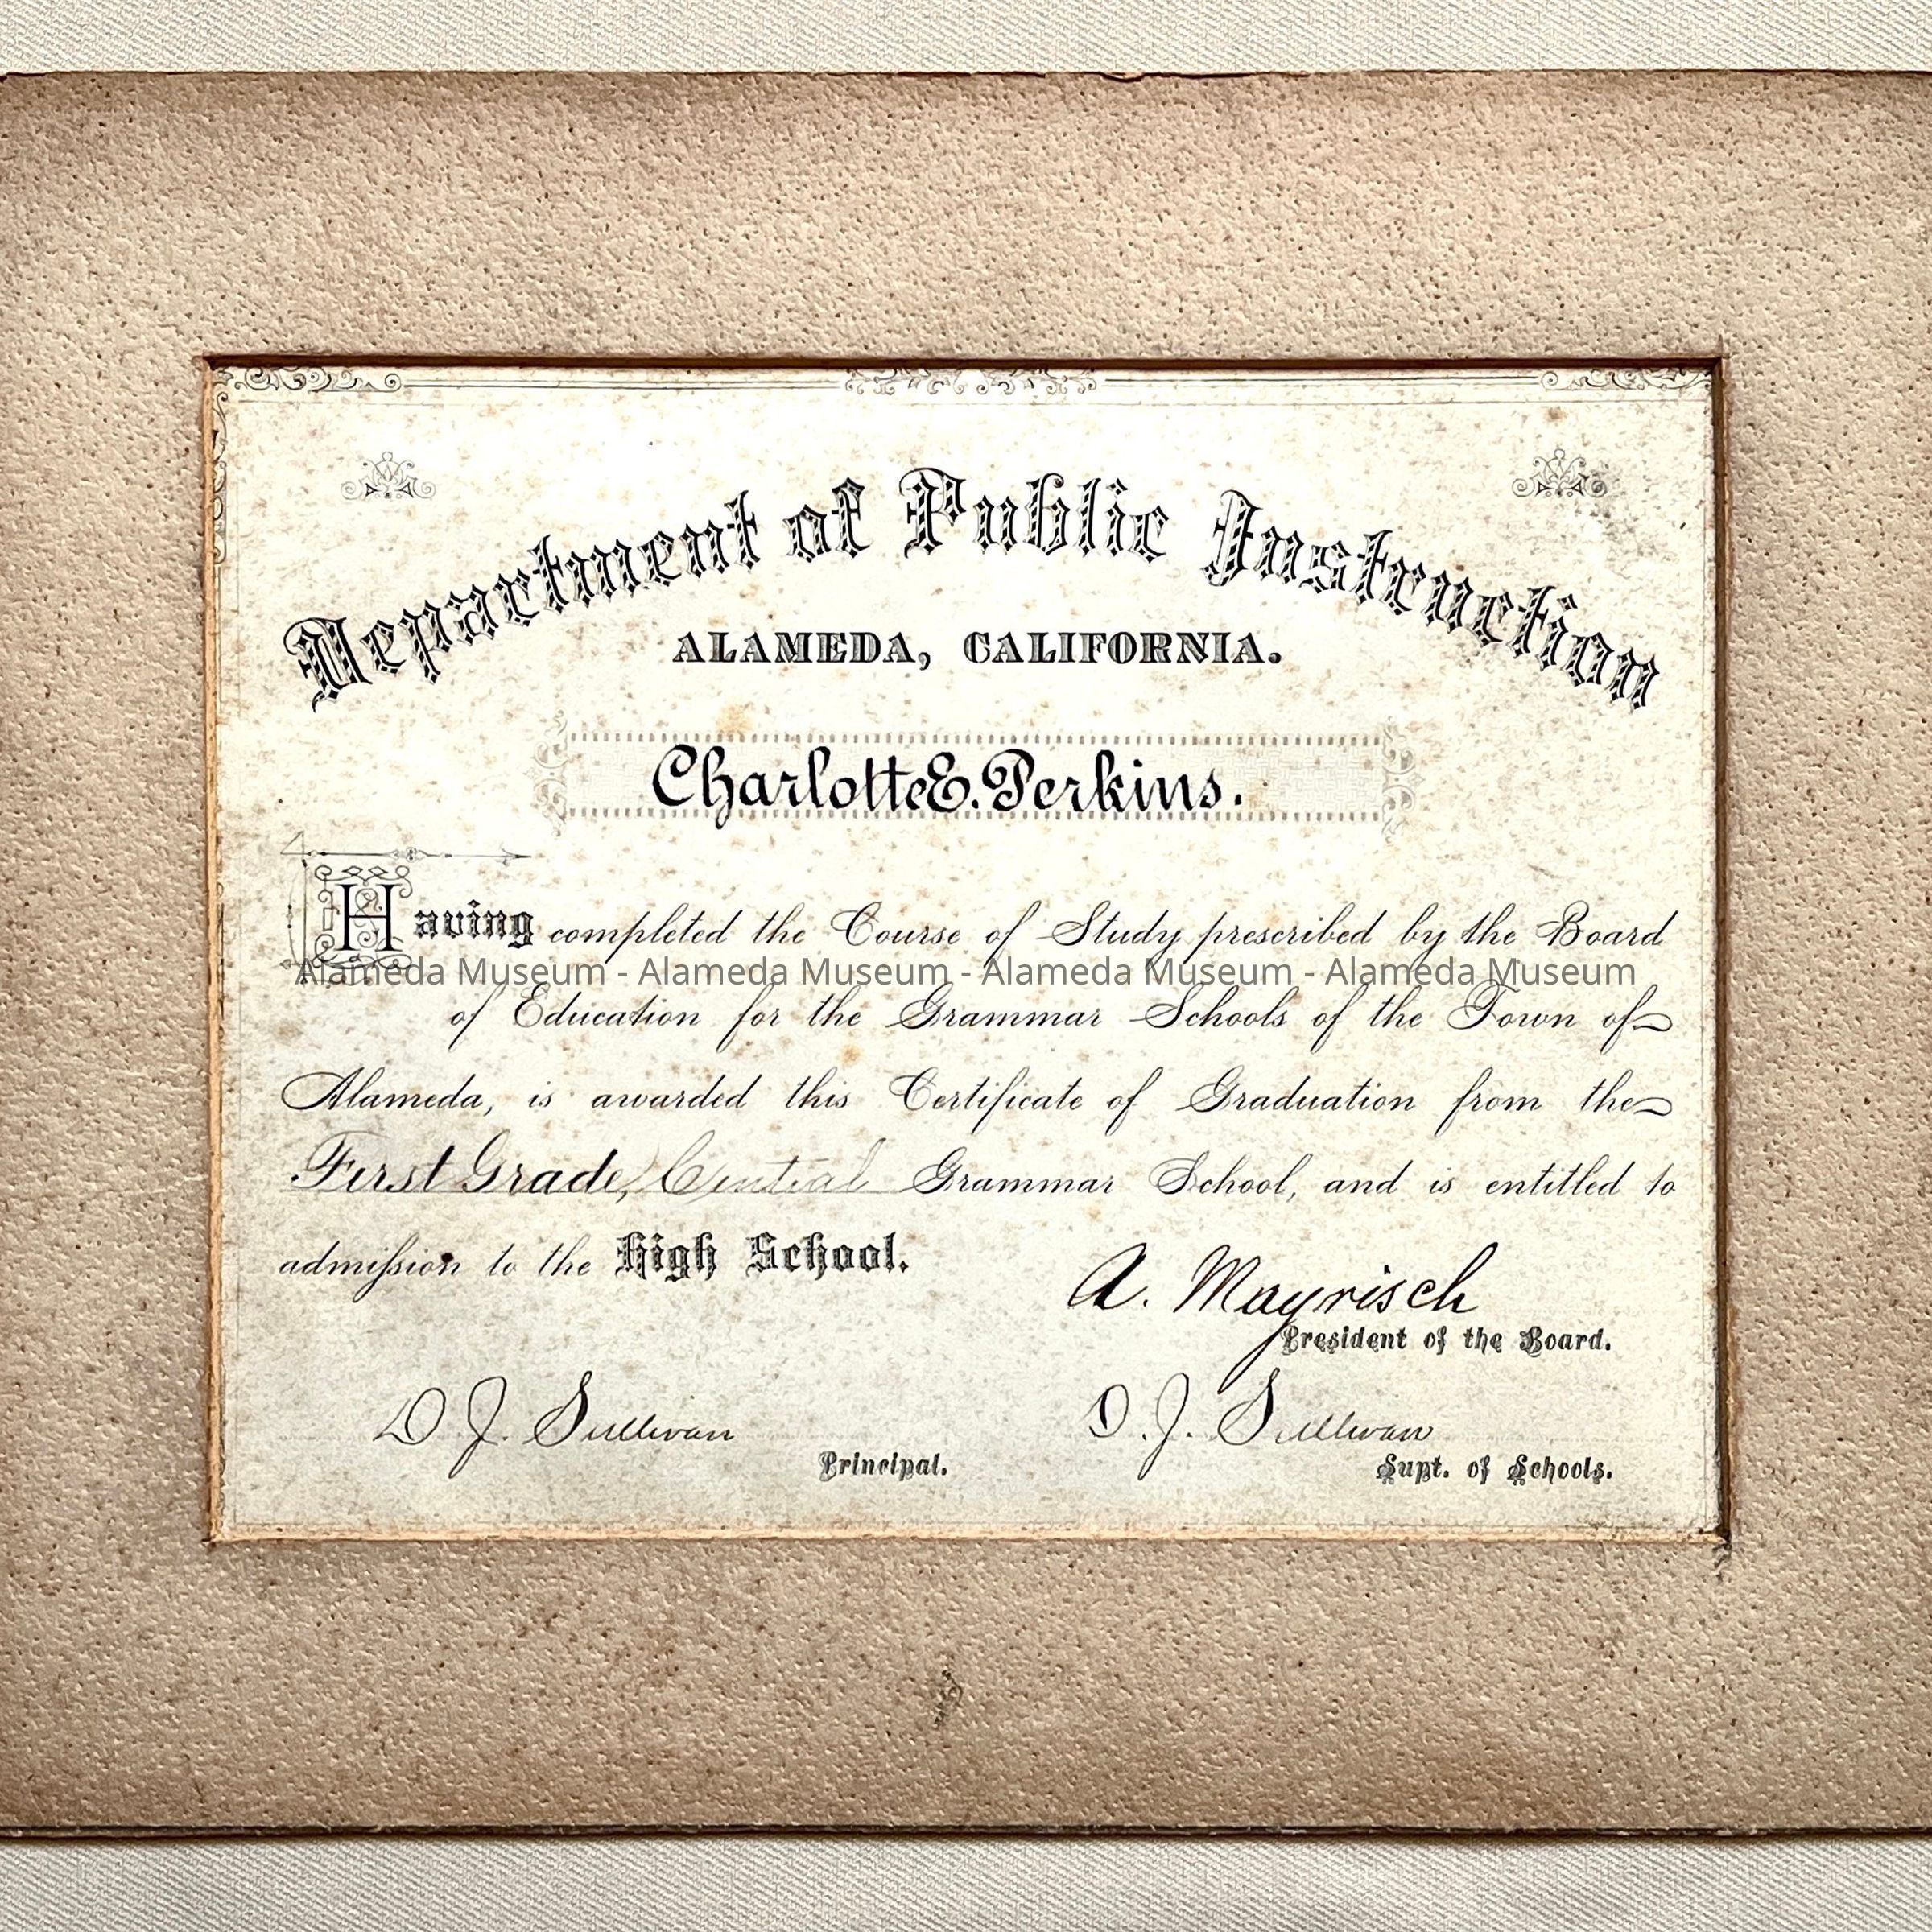 Department of Public Instruction
ALAMEDA, CALIFORNIA.
Charlotte E. Perkins.
Having completed the Course of Study prescribed by the Board
Alameda Museum - Alameda Museum - Alameda Museum - Alameda Museum
of Education for the Grammar Schools of the Town of
Alameda, is awarded this Certificate of Graduation from the
First Grade, Central Grammar School, and is entitled to
admission to the High School.
A. Mayrisch
President of the Board.
D. J. Sullivan D. J. Sullivan
Principal. Supt. of Schools.